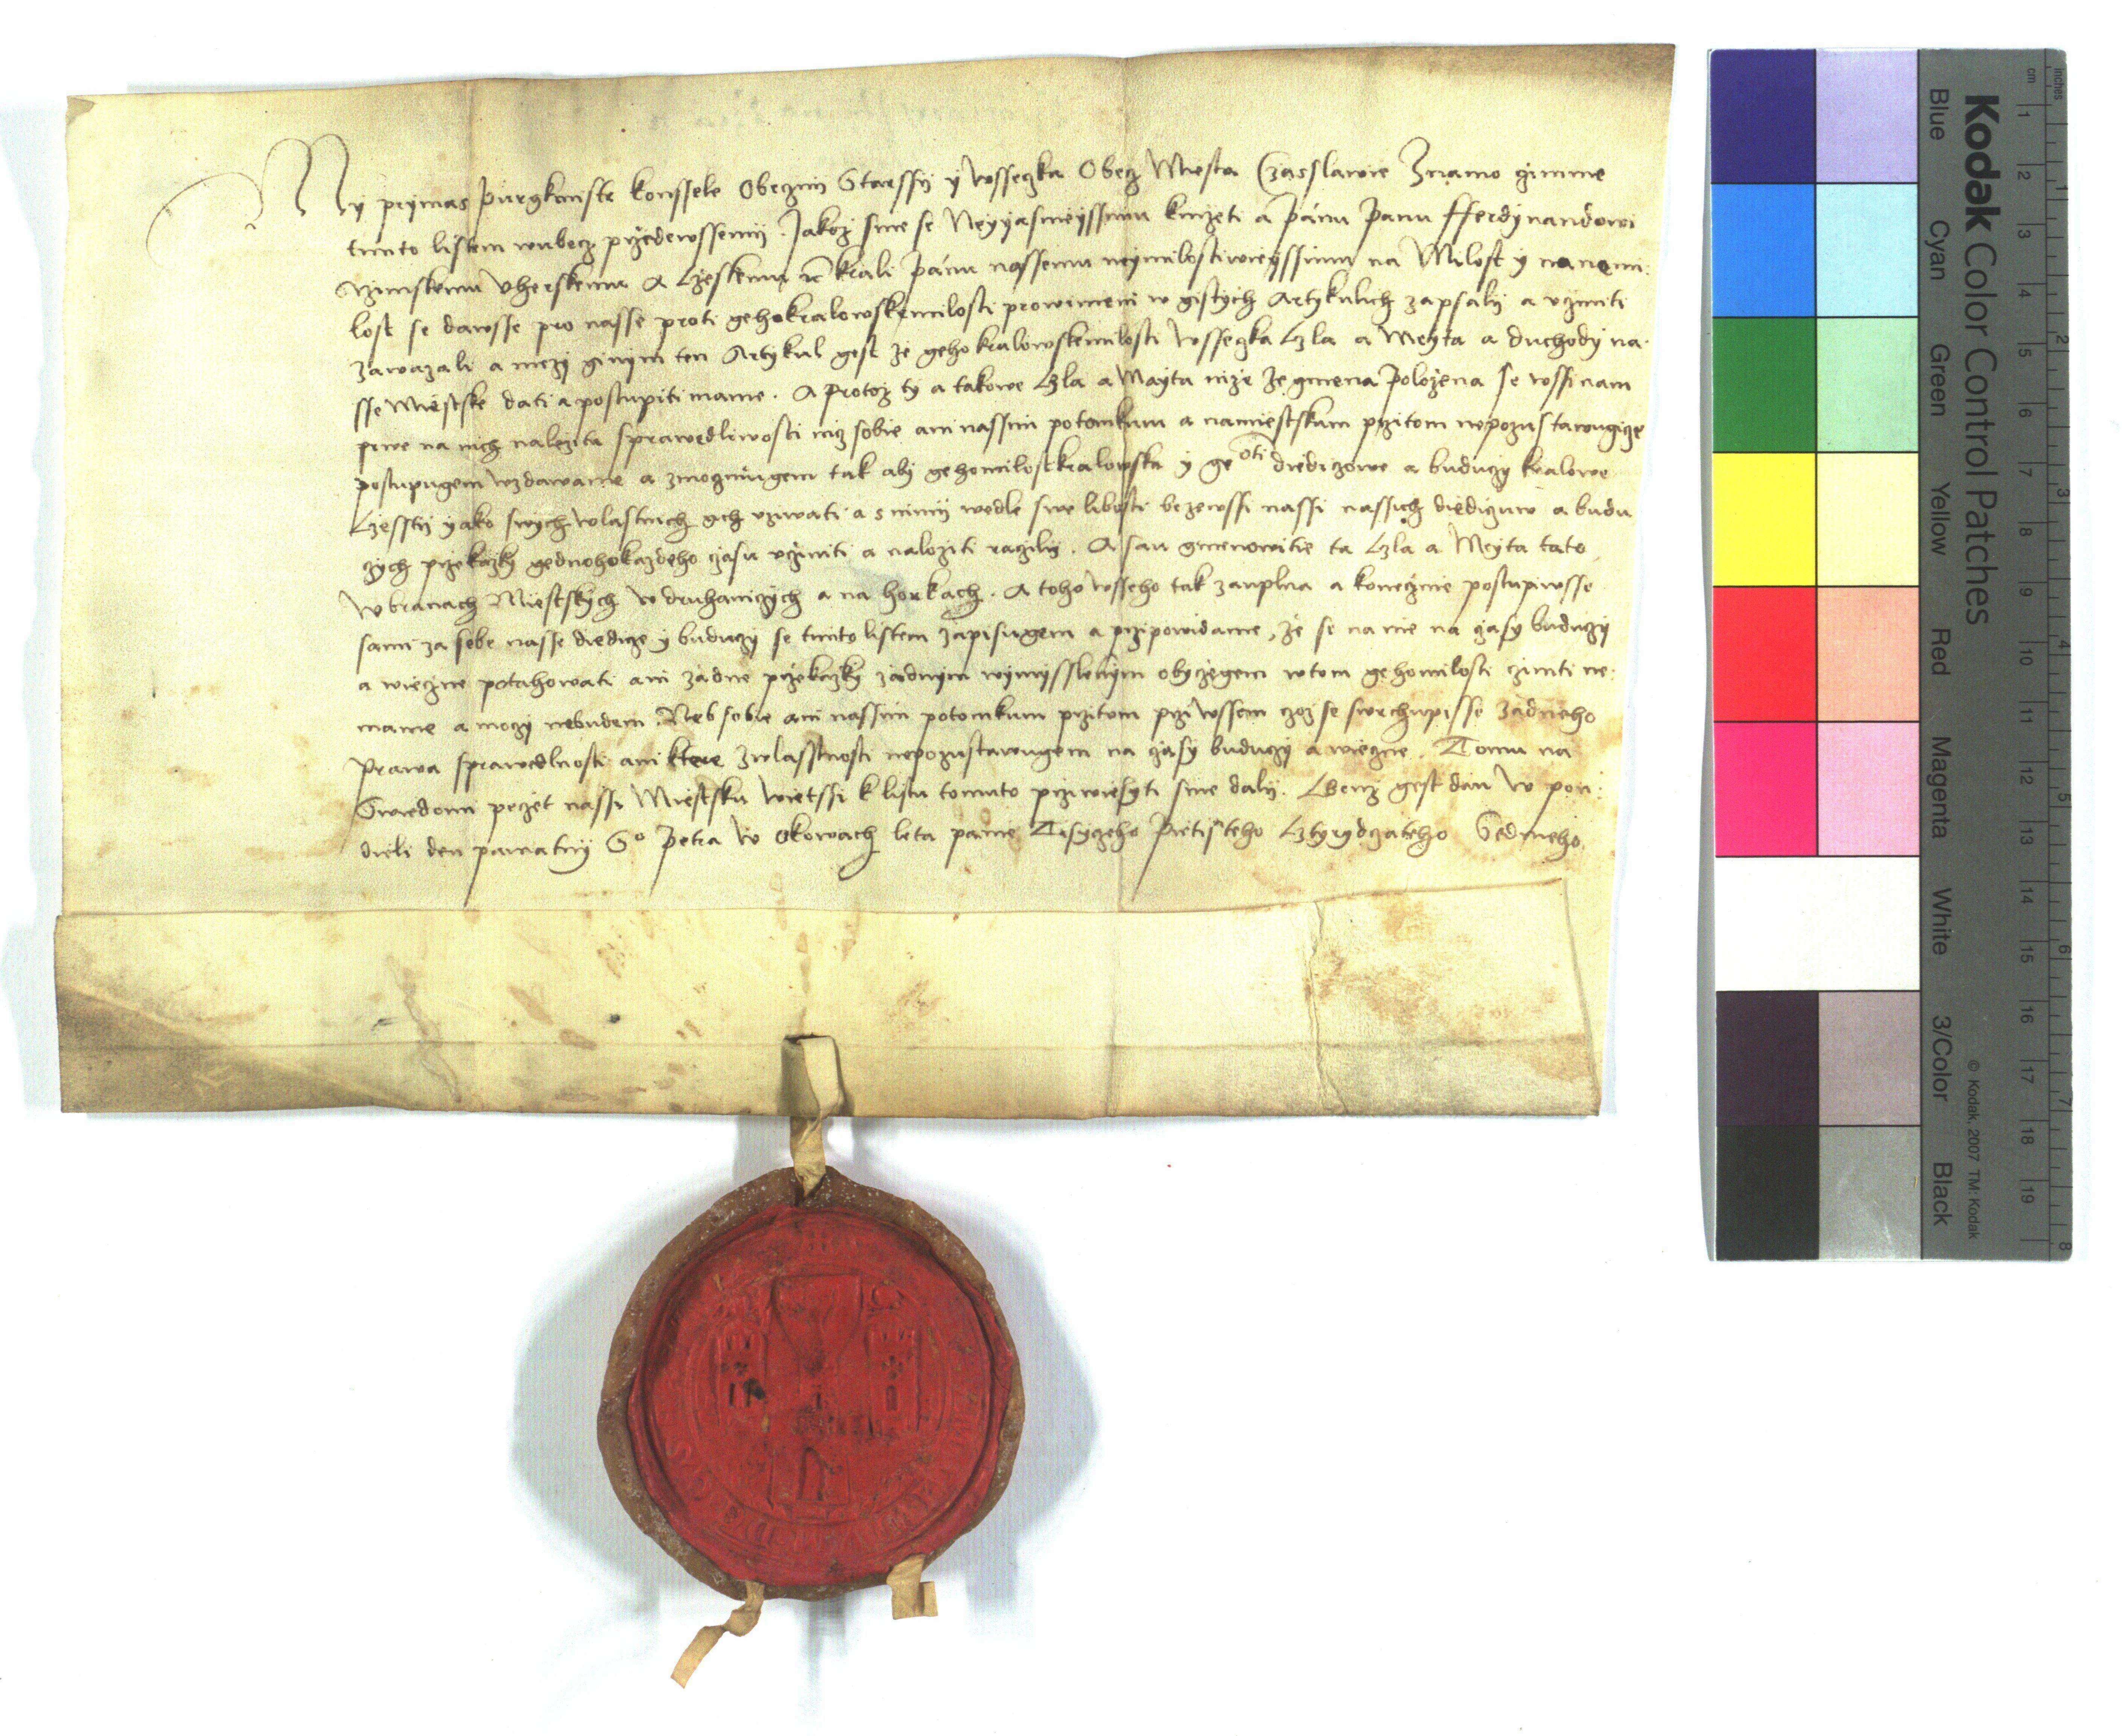 My prymas purgkmistr konssele Obecznij Starssij y wsseczka Obecz Miesta Czaslawie Znamo gimme
timto listem wubecz przedewssemij. Jakoz sme se Neyyasneyssimu knizeti a Pánu Panu Fferdynandowi
Rzimskemu Vherskemu A Czeskemu ꝛc krali Pánu nassemu neymilostiwieyssimu na Milost y nanemi:
lost se dawsse pro nasse proti gehokralowskemilosti prowinieni w gistych Artykulich zapsalij a vcziniti
zawazali a mezy ginym ten Artykul gest ze geho kralowskemilosti wsseczka Czla a Meyta a duchody na:
sse Miestske dati a postupiti mame. A Protoz ty a takowe Czla a Mayta nize ze gmena Polozena se wssi nam
prwe na nich nalezita sprawedliwosti niz sobie ani nassim potomkum a namiestskum przitom nepozustawugicze
postupugem wzdawame a zmoczniugem tak abij gehomilostkralowska y ge oti diediczowe a buduczy kralowe
Czesstij yako swych wlastnich gich vziwati a s nimij wedle swe libosti bezewssi nassi nassich diediczuw a budu
czych przekazky gednohokazdeho czasu vcziniti a naloziti raczilij. A sau gmenowitie ta Czla a Meyta tato
W branach Miestskych w druhaniczych a na horkach. A toho wsseho tak zauplna a konecznie postupiwsse
sami za sebe nasse diedicze y buduczy se timto listem zapisugem a przipowidame, ze se na nie na czasy buduczy
a wieczne potahowati ani zadne przekazky zadnym wymysslenym obyczegem w tom gehomilosti cziniti ne:
mame a moczy nebudem. Neb sobie ani nassim potomkum przitom przi wssem czoz se swrchupisse zadneho
Prawa sprawedlnosti ani ktere zwlasstnosti nepozustawugem na czasy buduczy a wieczne. Tomu na
Swiedomi peczet nassi Miestsku wietssi k listu tomuto przi wiesyti sme dalij. Genz gest dan w pon:
dieli den pamatnij So Petra w Okowach leta panie Tisyczeho Pietisteho Cztyrydczateho Sedmeho
Kodak Color Control Patches
Blue Cyan Green Yellow Red Magenta White 3/Color Black
© Kodak, 2007 TM: Kodak
inches 1 2 3 4 5 6 7 8
cm 1 2 3 4 5 6 7 8 9 10 11 12 13 14 15 16 17 18 19